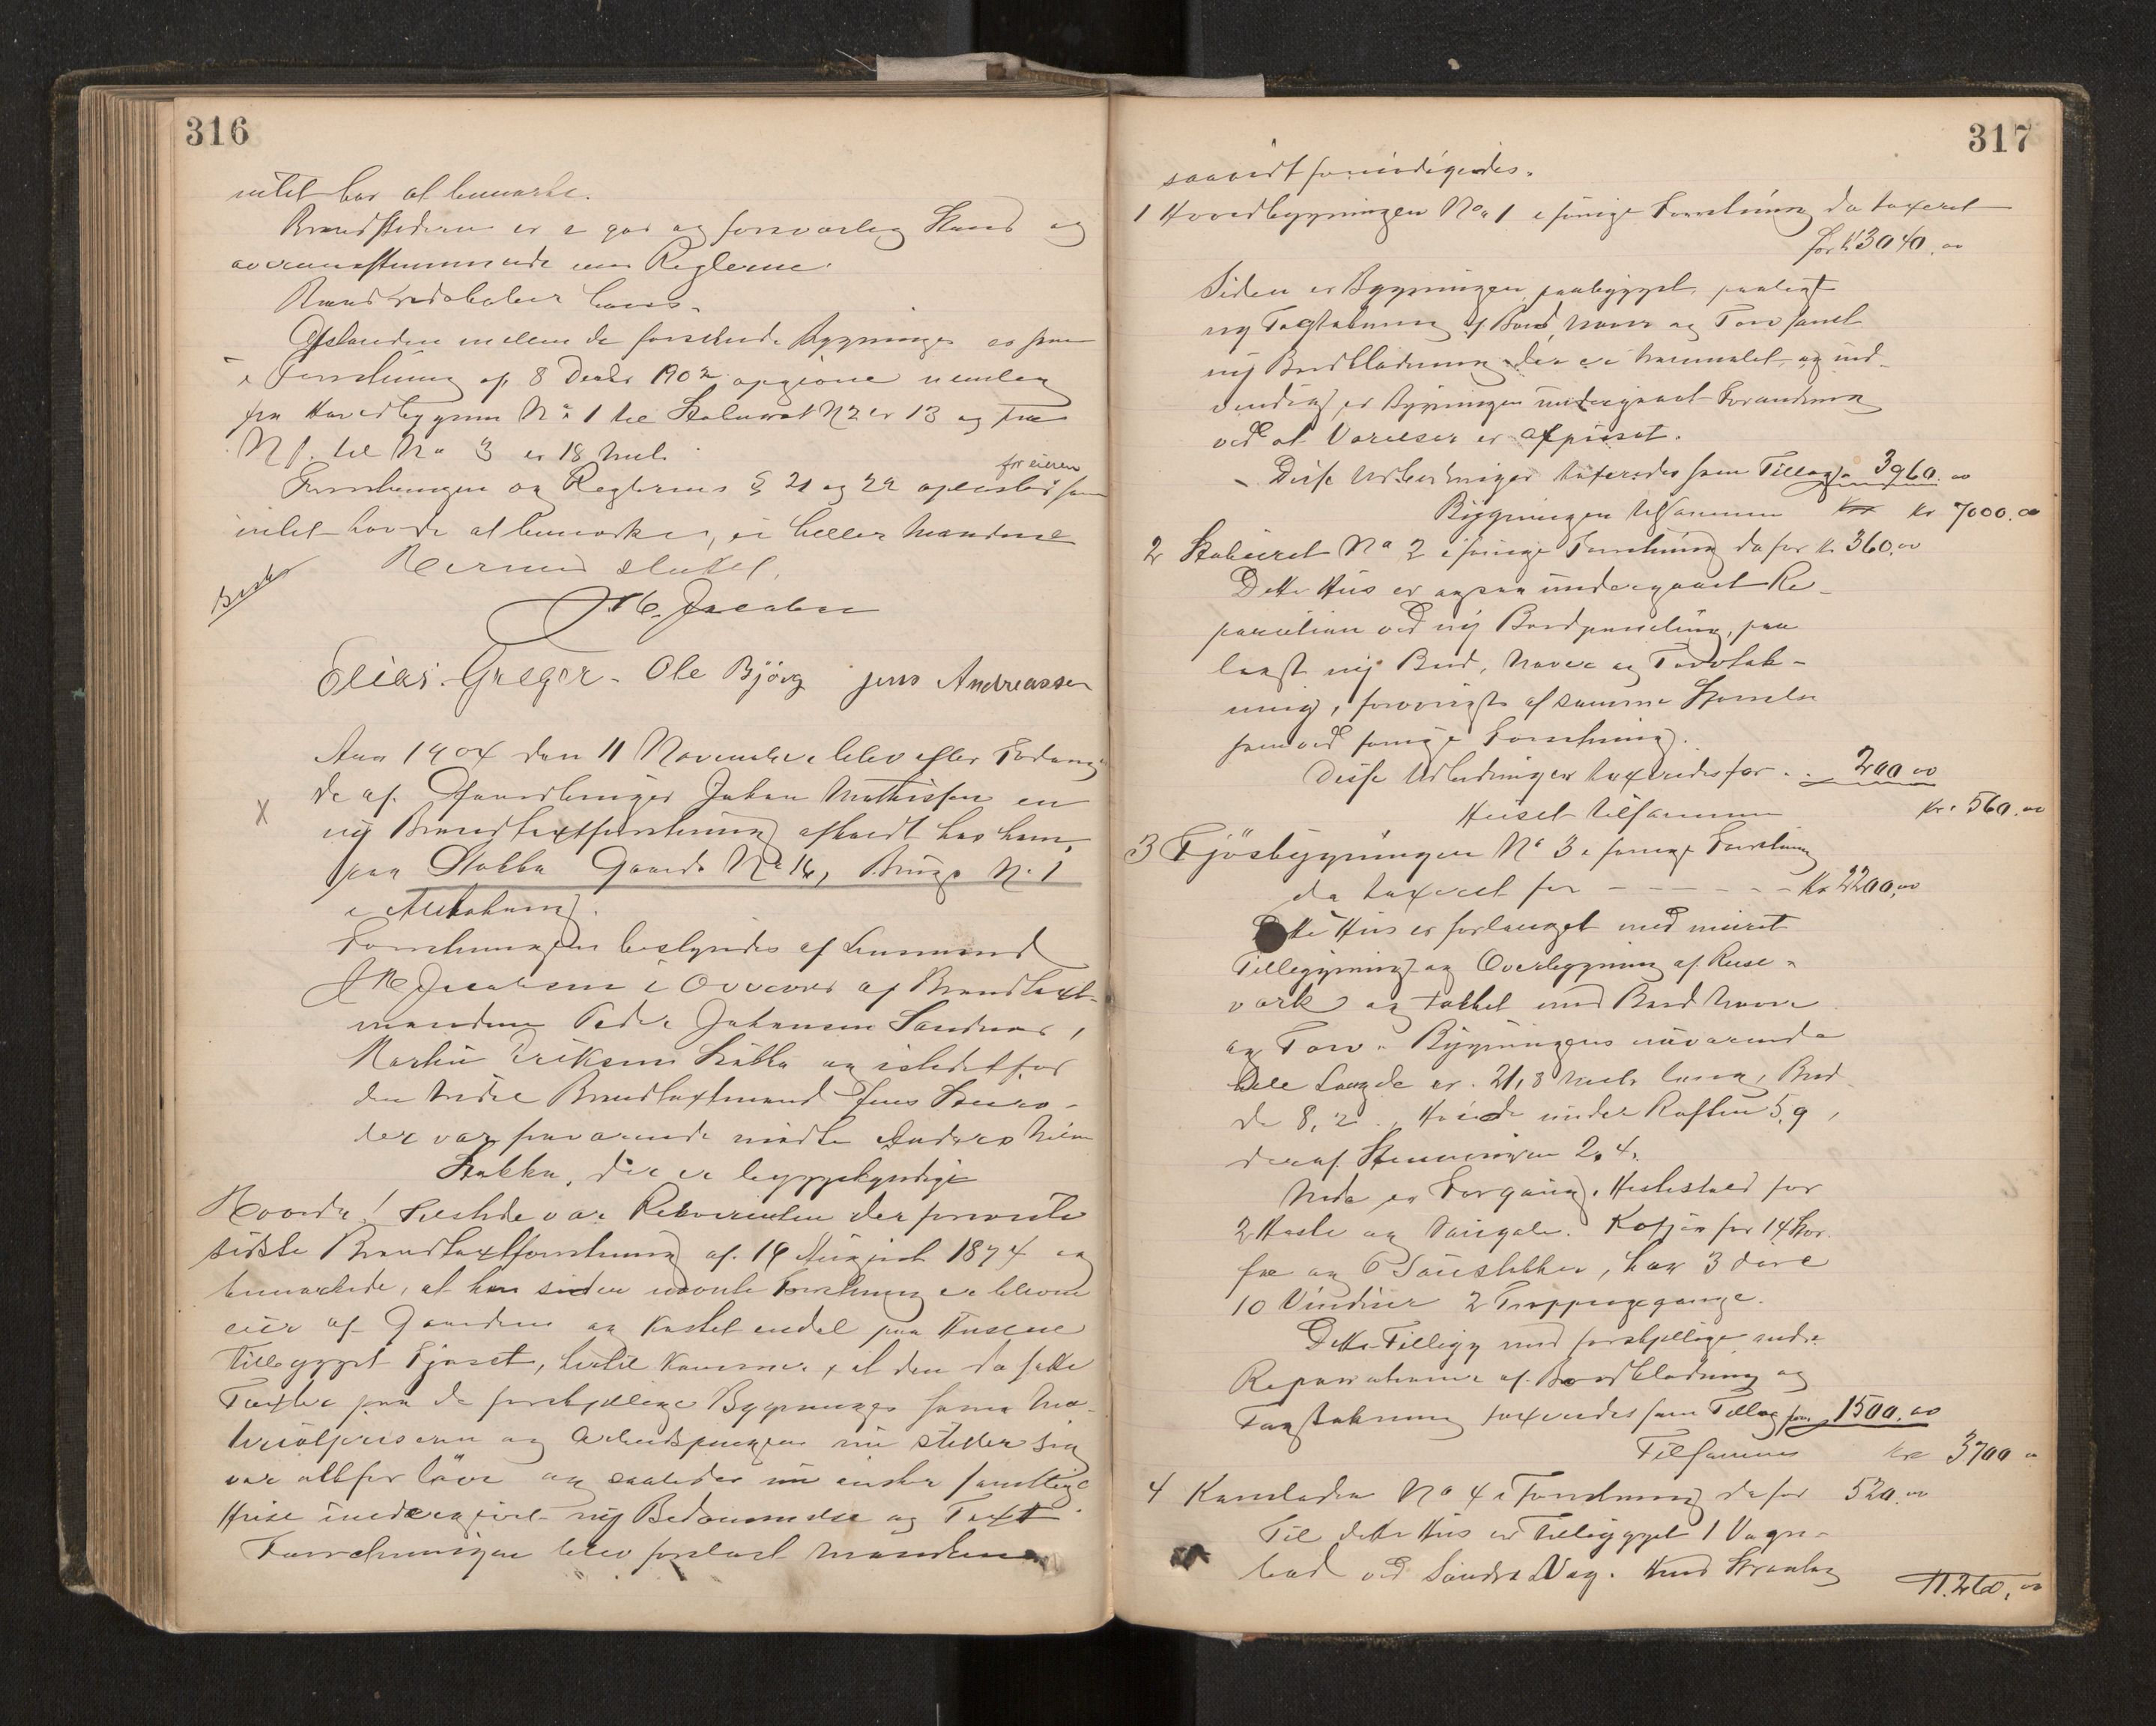 316
intet har at bemærke.
Brandstederne er i god og forsvarlig Stand og
overensstemmende med Reglerne.
Brandredskaber haves.
Afstanden mellem de forskjende Bygninger er som
i Forretning af 8 Decbr 1902 opgivne nemlig
fra Hovedbygnin No 1 til Stabured N 2 er 13 og fra
N 1. til No 3 er 18 Met.
Forretningen og Reglernes § 21 og 22 oplæstes for eieren som
intet havde at bemærke, ei heller Mændene
Besk
Herved sluttet.
J M. Jacobsen
Elias Greger - Ole Bjørg jens Andreassen
Aar 1904 den 11 November blev efter Forlangende
de af Gaardbruger Johan Mathissen en
X
ny Brandtaxtforretning afholdt hos ham,
paa Stakka Gaards No 16, Brugs N. 1
i Alstahaug.
Forretningen bestyredes af Lensmand
J M Jacobsen i Overvær af Brandtaxt-
mændene Peder Johansen Sandnes,
Martin Eriksen Stakka og istedetfor
den tredie Brandtaxtmand Jens
der var fraværende mødte Anders
Stakka, der er byggekyndige
Hvorda! Tilstede var Rekvirenten der foreviste
sidste Brandtaxtforretning af 19 August 1874 og
bemærkede, at han siden nævnte Forretning er bleven
eier af Gaarden og kostet endel paa Husene
tillbygget Fjøset, at den da satte
Taxter paa de forskjellige Bygninger som Ma-
terialpriserne og Arbeidspengene nu stiller sig
var altfor lave og saaledes nu ønsker samtlige
Huse undergivet ny Bedømmelse og Taxt.
Forretningen blev forelæst Mændene
317
saavidt fornødigedes.
1 Hovedbygningen No 1 i forrige Forretning da taxeret
for kr 3040.00
Siden er Bygningen paabygget, paalagt
ny Tagtækning af Bord, Næver og Torv samt
ny Bordklædning der er i malet og ind-
vendig er Bygningen undergaaet Forandring
ved at Værelser er afpusset.
Disse Udbedringer taxeredes som Tillæg 3960.00
Bygningen tilsammen Kr 7000.00
2 Staburet No 2 i forrige Forretning da for kr. 360.00
Dette Hus er ogsaa undergaaet Re-
paration ved ny Bordpaneling, paa
lagt ny Bord, Næver og Torvtæk-
ning, forøvrigt af samme Størrelse
som ved forrige Forretning.
Disse Udbedringer taxeredes for . . 200.00
Huset tilsammen kr. 560.00
3 Fjøsbygningen No 3 i forrige Forretning
da taxeret for - - - - - - Kr 2200.00
Dette Hus er forlænget med muret
Tilbygning og Overbygning af Reise-
værk og tækket med Bord Næver
og Torv. Bygningens nuværende
hele Længde er. 21,8 Metr lang, Bred-
de 8,2 , Høide under Raften 5,9,
deraf Stenmuren 2,4.
Nede er Forgang, Hestestald for
2 Heste og Kofjøs for 14 Stor-
fæ og 6 , har 3 døre
10 Vinduer 2 Trappeopgange.
Dette Tillegg med forskjellige andre
Reparationer af Bordklædning og
Tagtækning taxeredes som Tillæg for 1500.00
Tilsammen kr 3700
4 Kornladen No 4 i Forretning da for 520.00
Til dette Hus er tilbygget 1 Vogn-
bod ved Søndre Væg. Hus
11.260,00